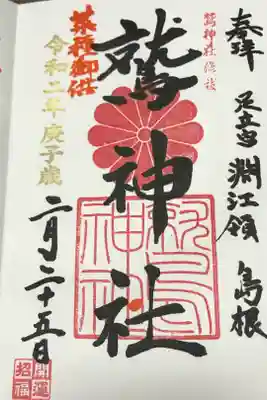 奉拝 足立 淵江領 島根
鷲神社
鷲神社
鷲神社
菜種御供
令和二年庚子歳
二月二十五日
開運
招福